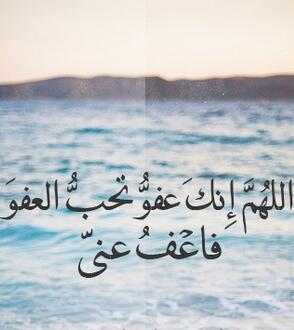 اللهُمَّ إِنكَ عفوُّ تحبُّ العفوَ
فاعْفُ عنيّ